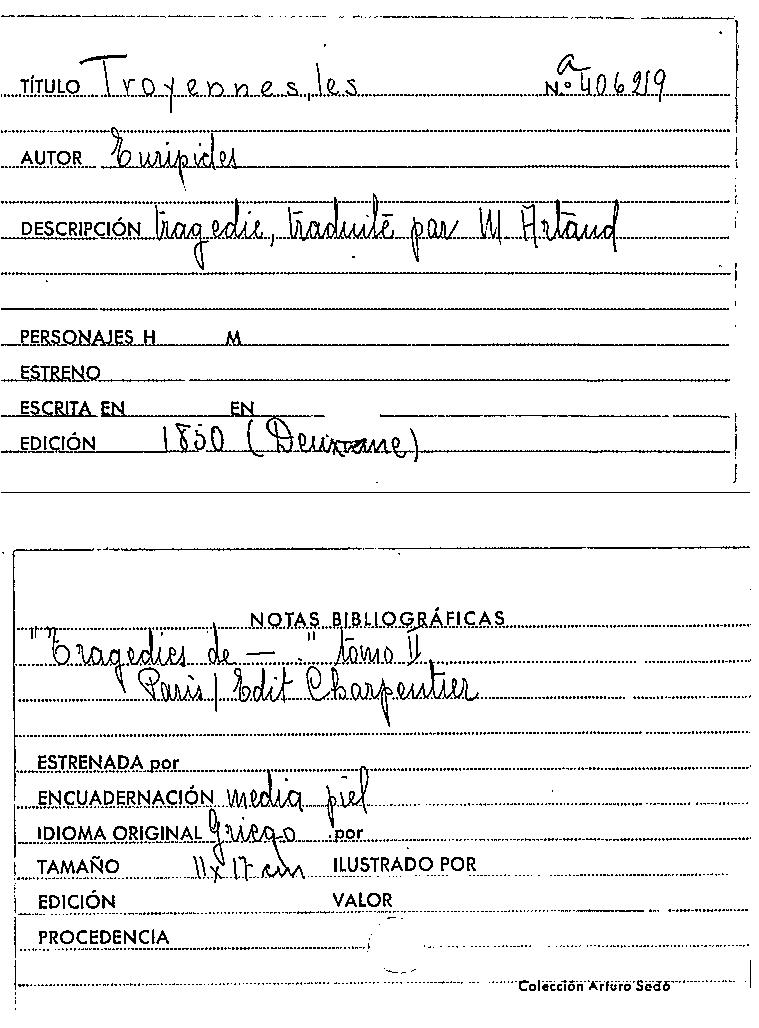 TÍTULO Troyennes, les Nº a 406219
AUTOR Euripides
DESCRIPCIÓN tragedie, traduite par M Artaud
PERSONAJES H M
ESTRENO
ESCRITA EN EN
EDICIÓN 1850 (Deuxieme)
NOTAS BIBLIOGRÁFICAS
"Tragedies de — ." tomo II
Paris / Edit Charpentier
ESTRENADA por
ENCUADERNACIÓN media piel
IDIOMA ORIGINAL Griego por
TAMAÑO 11 x 17 cm ILUSTRADO POR
EDICIÓN VALOR
PROCEDENCIA
Colección Arturo Sedó